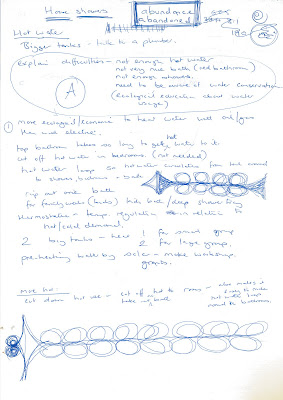 Home showers
abundance
abandoned
Hot water
Bigger tanks - talk to a plumber.
Explain difficulties - not enough hot water
not very nice bath (red bathroom)
not enough showers
need to be aware of water conservation
(ecological education about water
usage)
A
① more ecological/economic to heat water with oil/gas
than with electric.
hot
top bathroom takes so long to get water to it
cut off hot water in bedrooms (not needed)
hot water loop so hot water circulates
to showers, bathroom
rip out one bath
for family use (kids) kids bath/deep shower tray
thermostats - temp. regulation
hot/cold demand.
2 big tanks - have 1 for small group
2 for large group,
pre-heating bath by solar - make workshop,
grants.
more hot
cut down hot use - cut off hot to rooms - also makes it
take bath